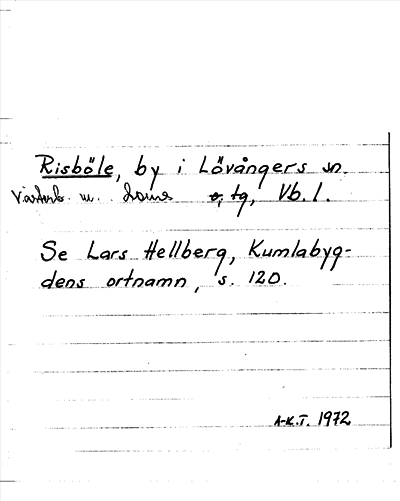 Risböle, by i Lövångers sn.
Västerb. m. doms o, tg, Vb. l.
Se Lars Hellberg, Kumlabyg-
dens ortnamn, s. 120.
A-K.T. 1972